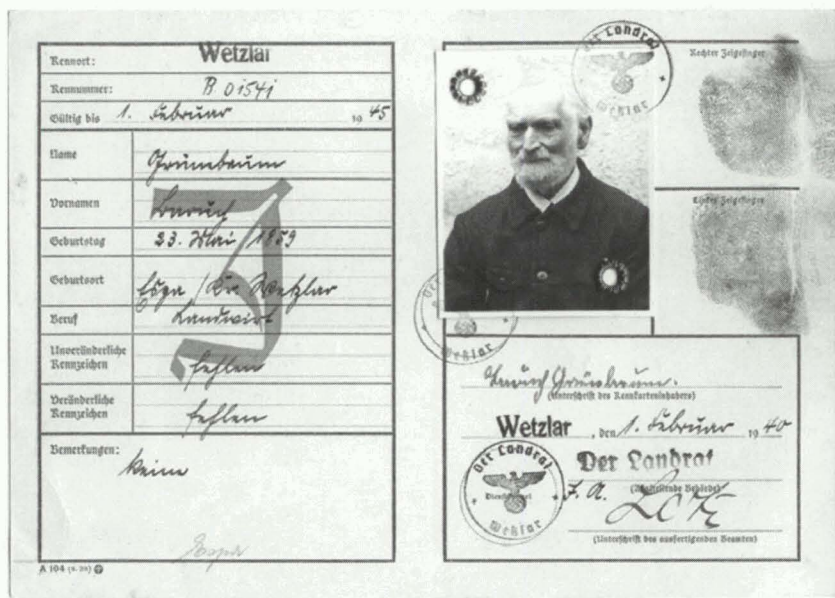 Kennort: Wetzlar
Kennummer: B 01541
Gültig bis 1. Februar 1945
Name Grünebaum
Vornamen Baruch
Geburtstag 23. Mai 1859
Geburtsort Espa / Kr. Wetzlar
Beruf Landwirt
Unveränderliche Kennzeichen fehlen
Veränderliche Kennzeichen fehlen
Bemerkungen: keine
J
Espa
A 104 (9. 38)
Der Landrat
Wetzlar
Rechter Zeigefinger
Linker Zeigefinger
Der Landrat
Wetzlar
Baruch Grünebaum.
(Unterschrift des Kennkarteninhabers)
Wetzlar, den 1. Februar 1940
Der Landrat
(Ausstellende Behörde)
J. A.
(Unterschrift des ausfertigenden Beamten)
Der Landrat
Dienstsiegel
Wetzlar